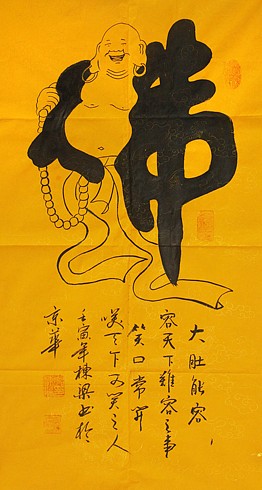 佛
大肚能容，
容天下难容之事
笑口常开
咲天下可笑之人
壬寅年棟梁书於
京華